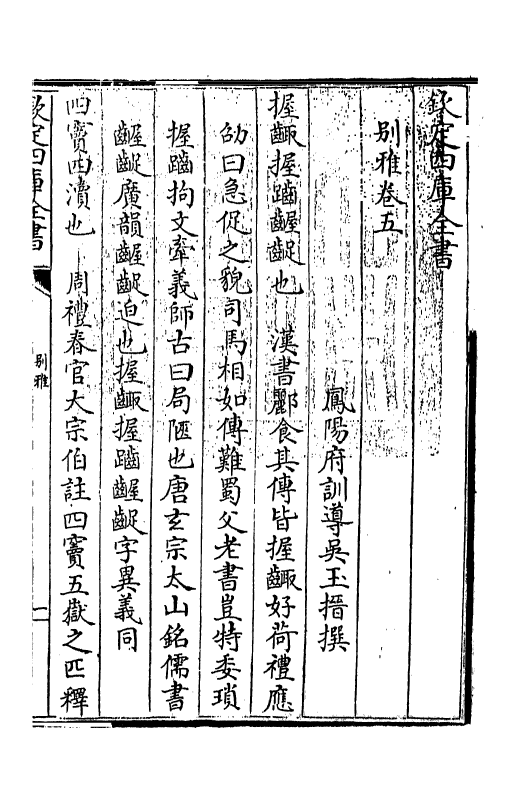 欽定四庫全書
別雅卷五
鳳陽府訓導吳玉搢撰
握齱握齪齷齪也　漢書酈食其傳皆握齱好荷禮應
劭曰急促之貌司馬相如傳難蜀父老書豈特委瑣
握齪拘文牽義師古曰局陋也唐玄宗太山銘儒書
齷齪廣韻齷齪迫也握齱握齪齷齪字異義同
四竇四瀆也　周禮春官大宗伯註四竇五嶽之匹釋
欽定四庫全書
別雅
一